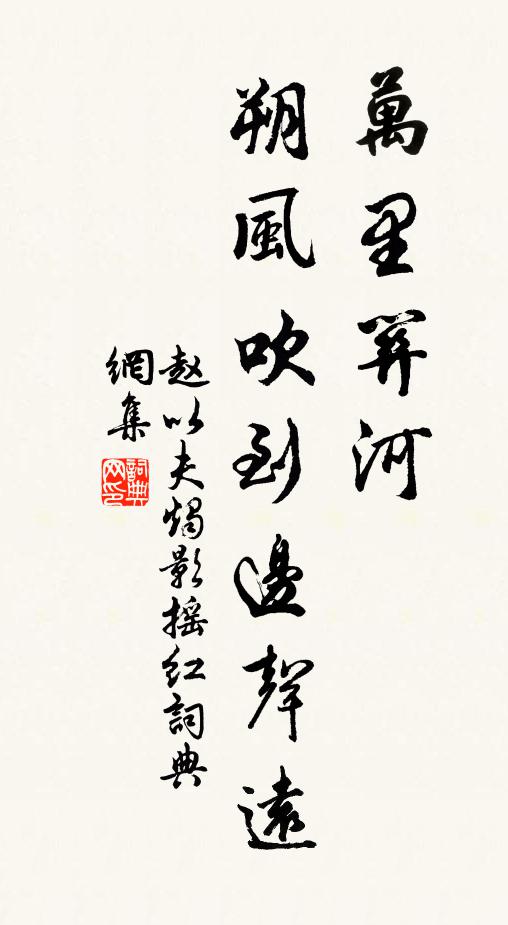 萬里關河
朔風吹到邊聲遠
赵以夫燭影摇红詞典
網集
詞典
网印